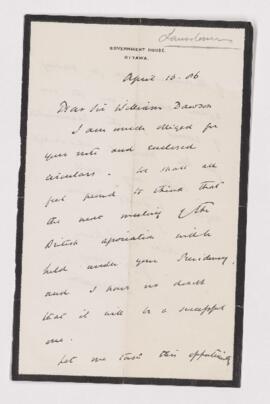 Lansdowne
GOVERNMENT HOUSE,
OTTAWA.
April 10. 86
Dear Sir William Dawson
I am much obliged for
your note and enclosed
circulars. We shall all
feel proud to think that
the next meeting of the
British Association will be
held under your Presidency,
and I have no doubt
that it will be a successful
one.
Let me take this opportunity